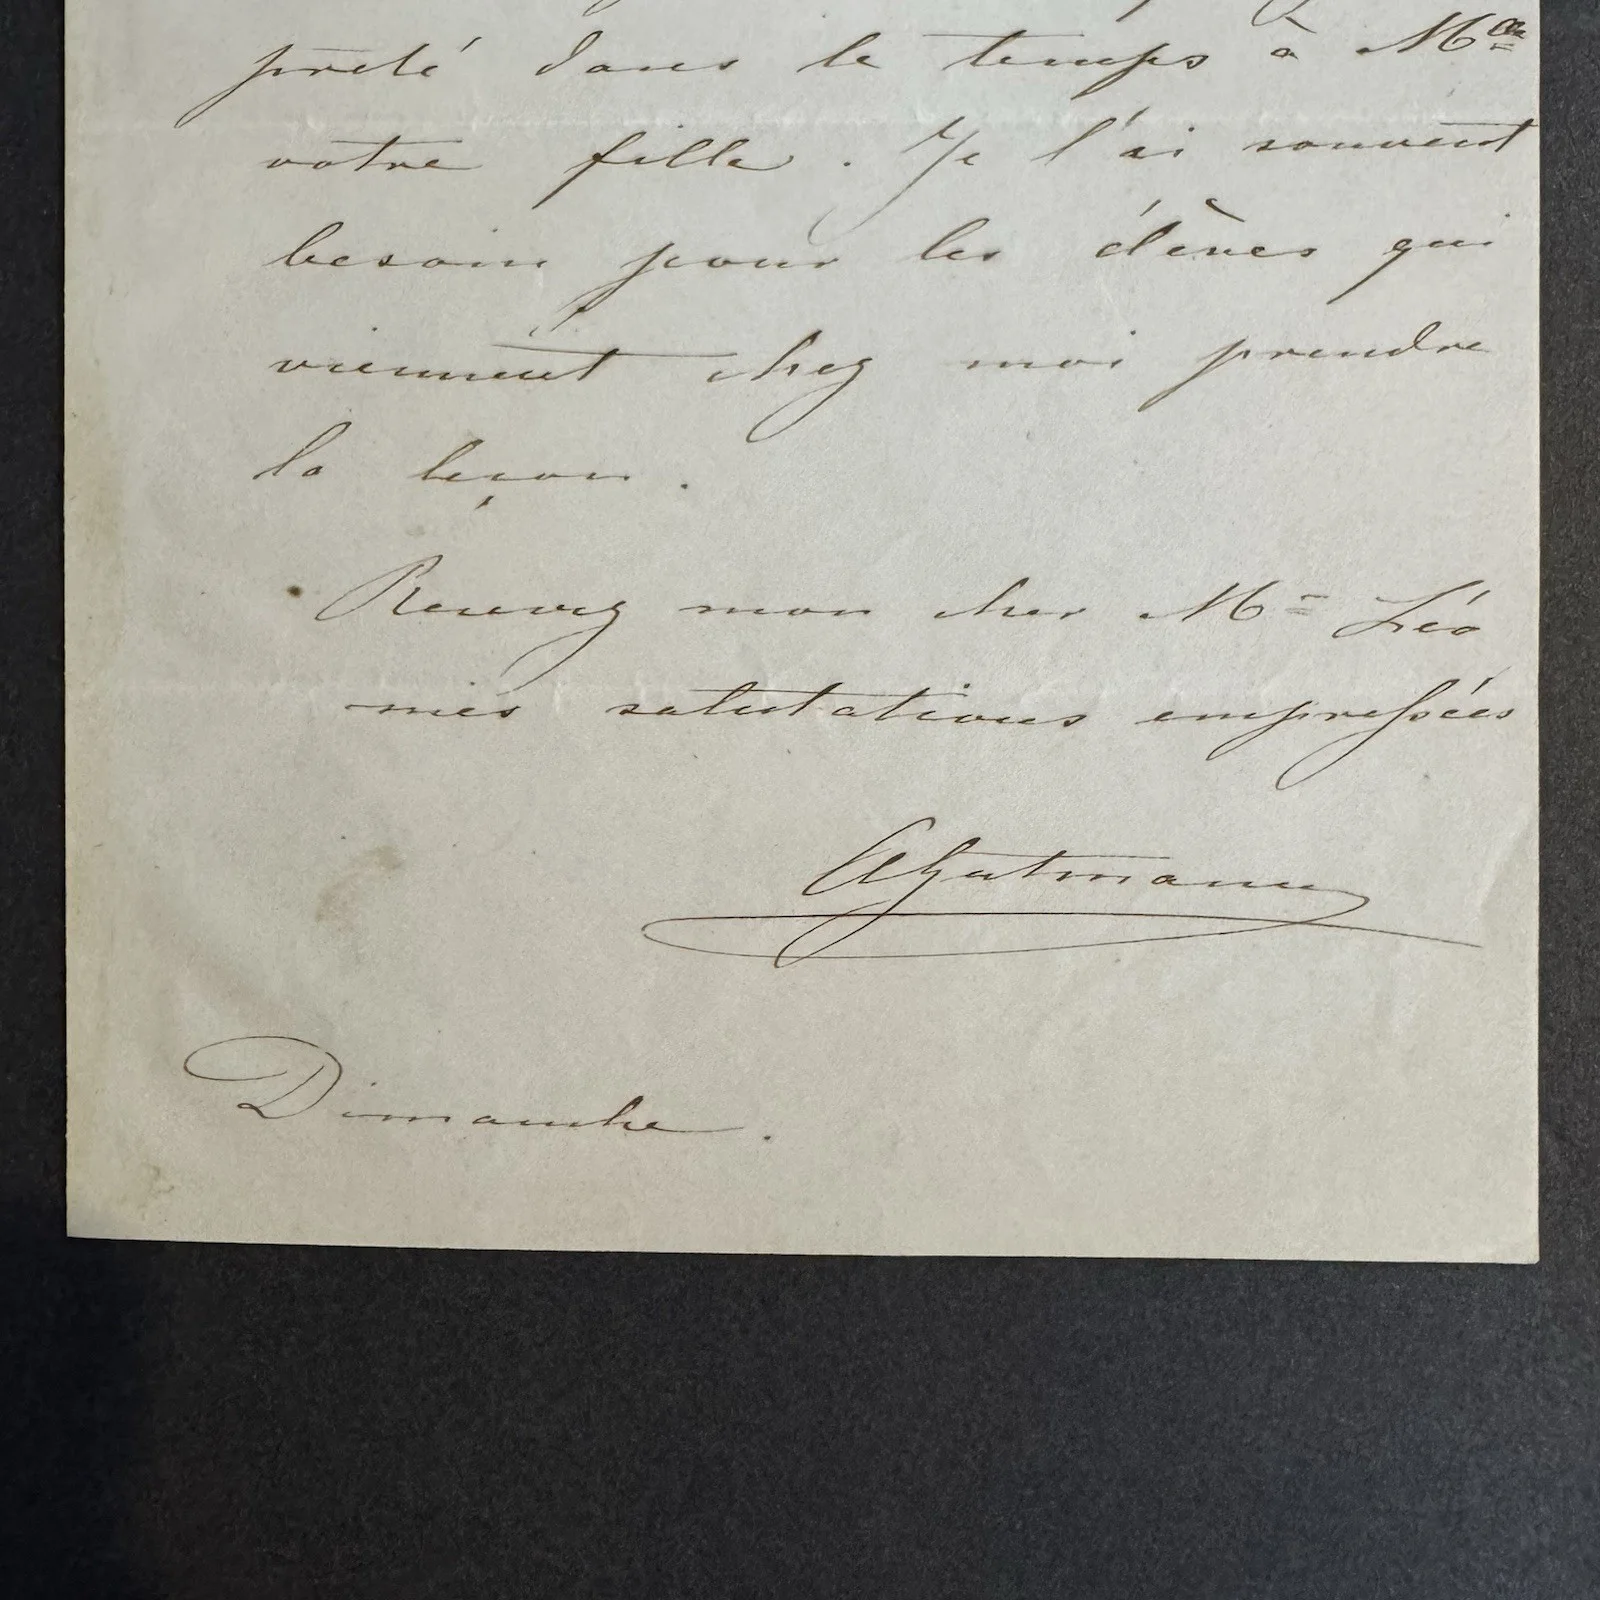 prêté dans le temps à Mlle
votre fille. Je l'ai souvent
besoin pour les élèves qui
viennent chez moi prendre
la leçon.
Recevez mon cher Mr Léo
mes salutations empressées
AGutmann
Dimanche.